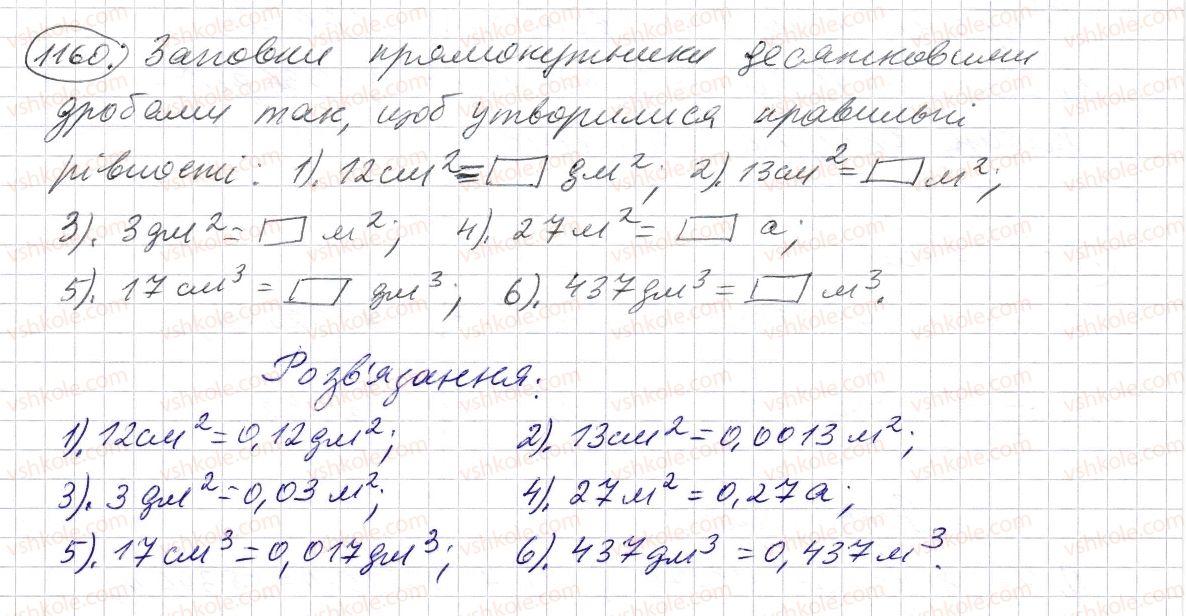 1160. Заповни прямокутники десятковими
дробами так, щоб утворилися правильні
рівності: 1). 12см² = □ дм²; 2). 13см² = □ м²;
3). 3дм² = □ м²; 4). 27м² = □ а;
5). 17см³ = □ дм³; 6). 437дм³ = □ м³.
Розв'язання:
1). 12см² = 0,12дм²; 2). 13см² = 0,0013м²;
3). 3дм² = 0,03м²; 4). 27м² = 0,27а;
5). 17см³ = 0,017дм³; 6). 437дм³ = 0,437м³.